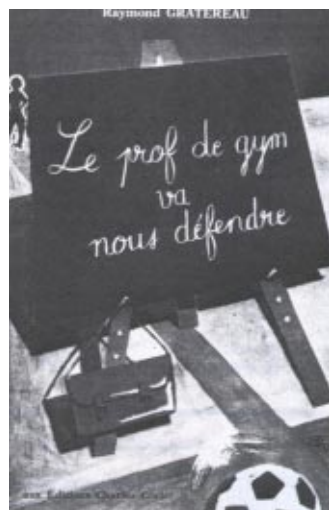 Raymond GRATEREAU
Le prof de gym
va
nous défendre
aux Editions Charles